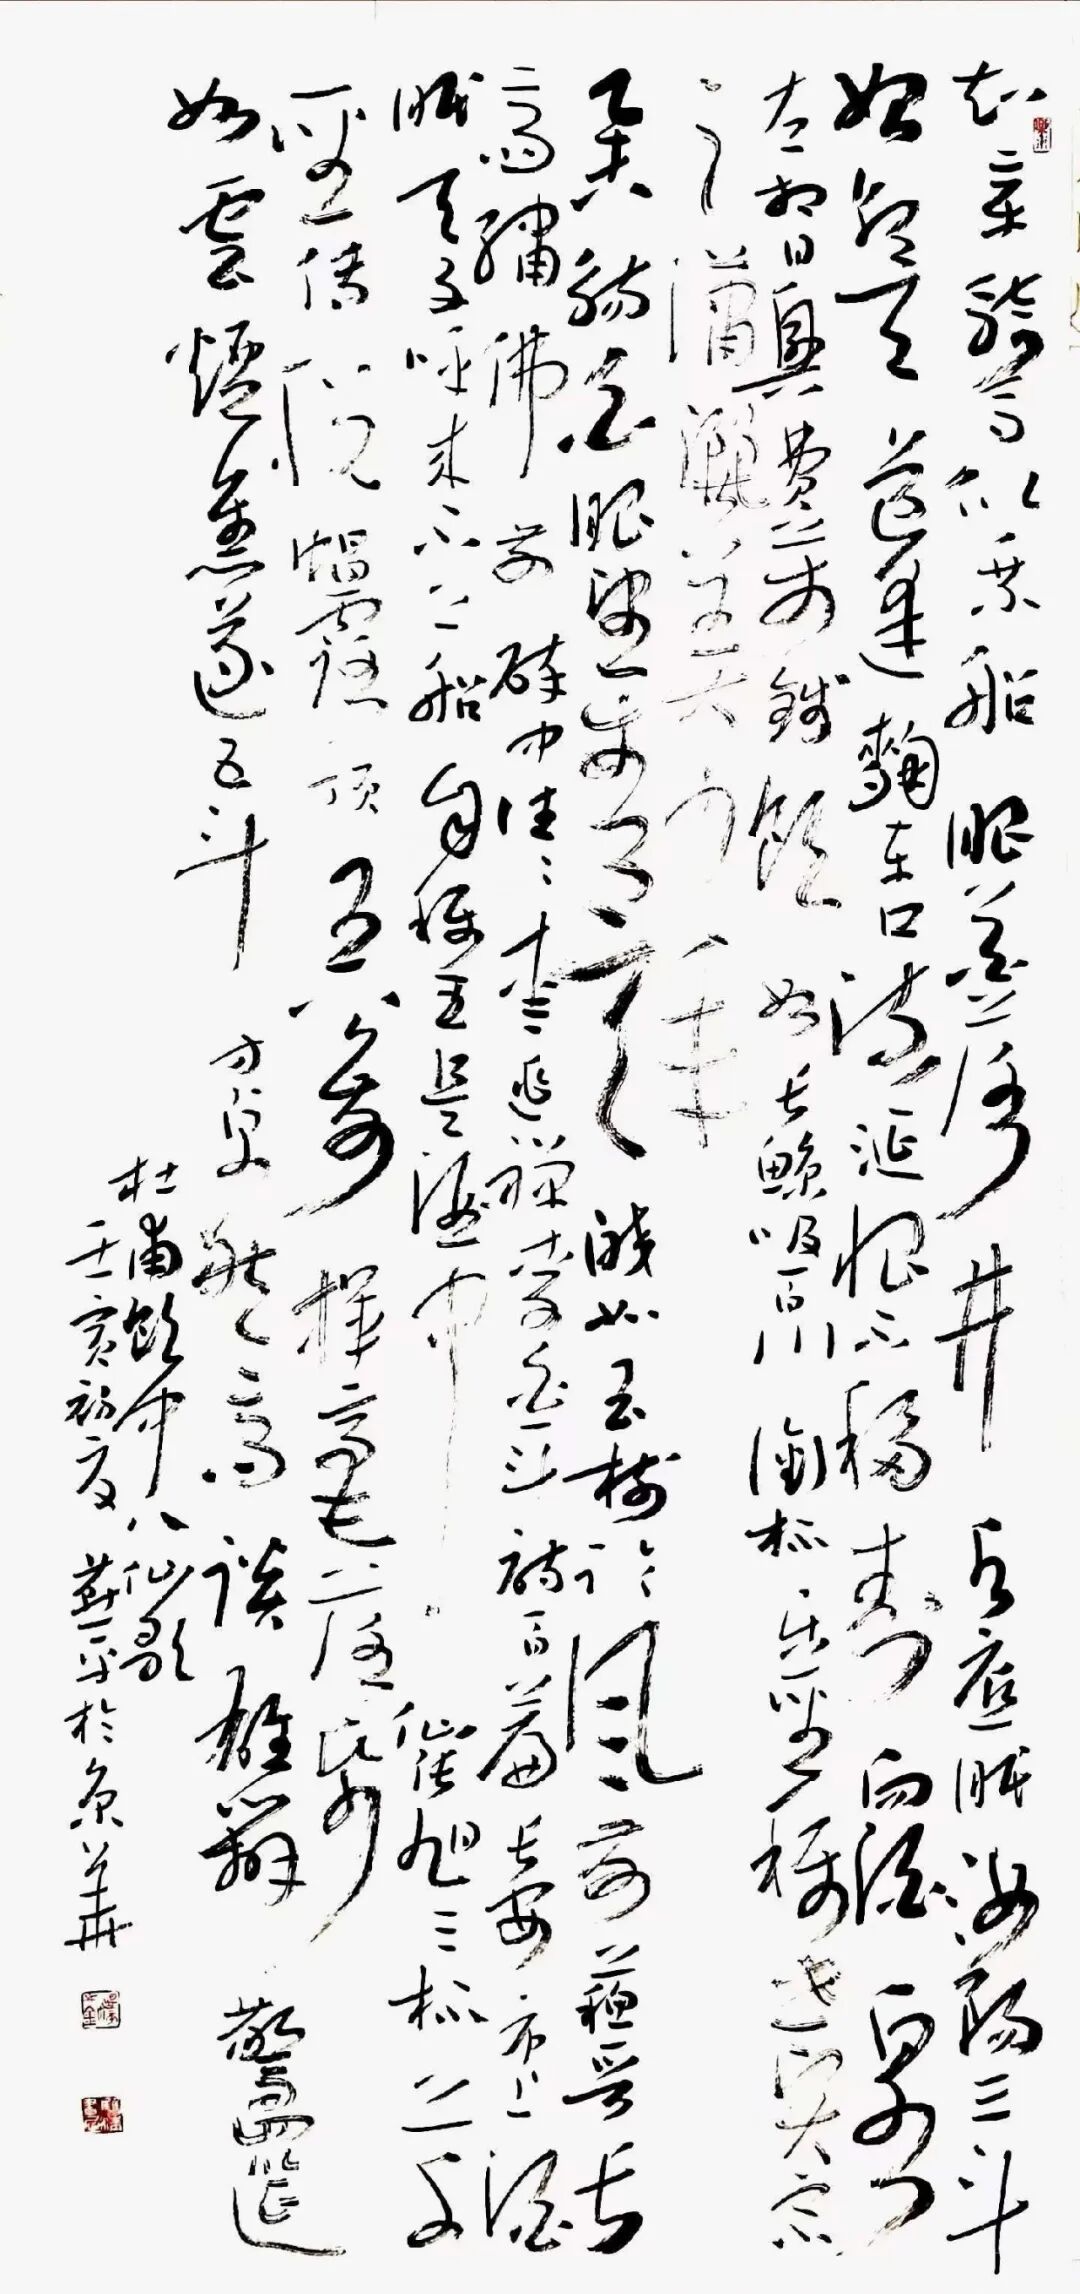 知章騎馬似乘船眼花落井水底眠汝陽三斗
始朝天道逢麴車口流涎恨不移封向酒泉
左相日興費萬錢飲如長鯨吸百川銜杯樂聖稱賢宗
之瀟灑美少年
舉觴白眼望青天皎如玉樹臨風前蘇晉長
齋繡佛前醉中往往愛逃禪李白一斗詩百篇長安市上酒家
眠天子呼來不上船自稱臣是酒中仙張旭三杯草
聖傳脫帽露頂王公前揮毫落紙
如雲煙焦遂五斗方卓然高談雄辯驚四筵
杜甫飲中八仙歌
壬寅初夏於京華